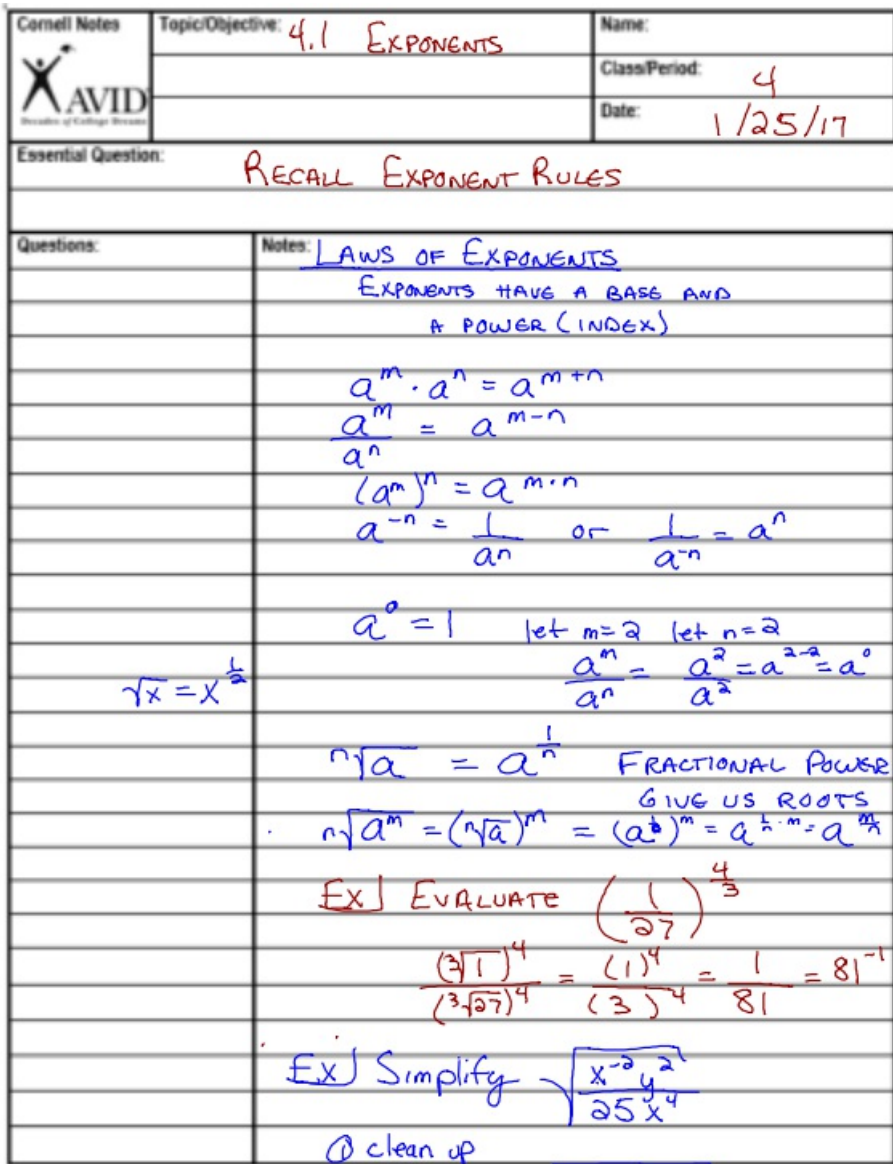 Cornell Notes
AVID
Decades of College Dreams
Topic/Objective: 4.1 EXPONENTS
Name:
Class/Period: 4
Date: 1/25/17
Essential Question: RECALL EXPONENT RULES
Questions:
Notes: LAWS OF EXPONENTS
EXPONENTS HAVE A BASE AND
A POWER (INDEX)
a^m · a^n = a^{m+n}
a^m/a^n = a^{m-n}
(a^m)^n = a^{m·n}
a^{-n} = 1/a^n or 1/a^{-n} = a^n
a^0 = 1 let m=2 let n=2
a^m/a^n = a^2/a^2 = a^{2-2} = a^0
√x = x^{1/2}
ⁿ√a = a^{1/n} FRACTIONAL POWER
GIVE US ROOTS
ⁿ√a^m = (ⁿ√a)^m = (a^{1/n})^m = a^{1/n·m} = a^{m/n}
Ex] EVALUATE (1/27)^{4/3}
(³√1)^4/(³√27)^4 = (1)^4/(3)^4 = 1/81 = 81^{-1}
Ex] Simplify √(x^{-2}y^2/25x^4)
① clean up